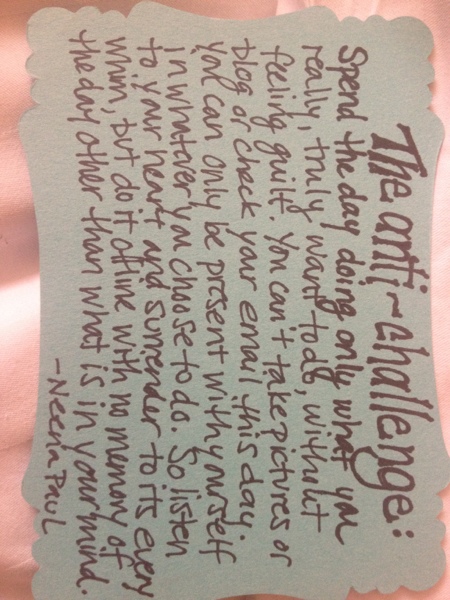 The anti-challenge:
Spend the day doing only what you
really, truly want to do, without
feeling guilt. You can't take pictures or
blog or check your email this day.
You can only be present with yourself
in whatever you choose to do. So listen
to your heart and surrender to its every
whim, but do it offline with no memory of
the day other than what is in your mind.
-Neena Paul